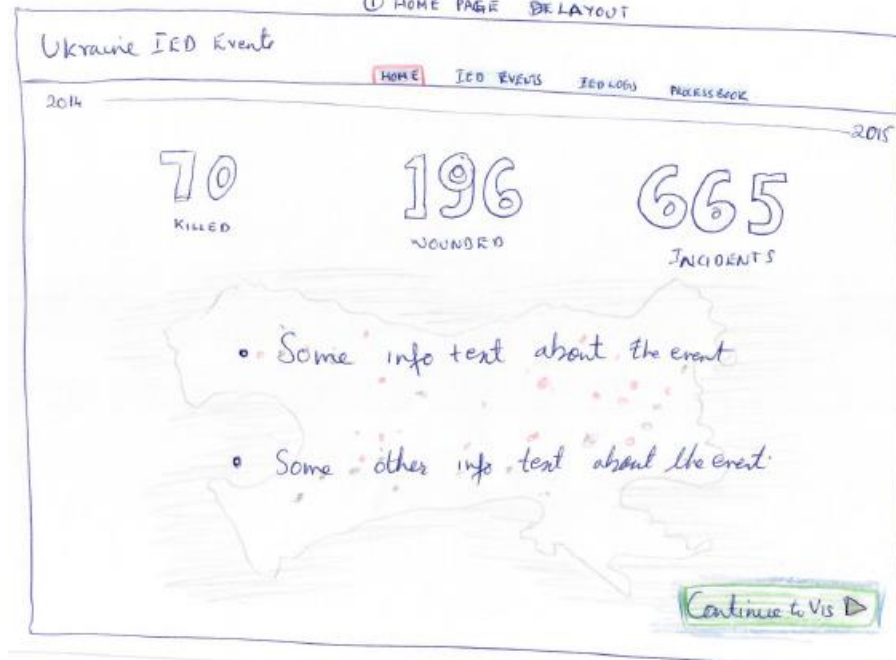 ① HOME PAGE DE LAYOUT
Ukraine IED Events
HOME IED EVENTS IED LOGS PROCESS BOOK
2014
2015
70 196 665
KILLED WOUNDED INCIDENTS
• Some info text about the event
• Some other info text about the event.
Continue to Vis ▷